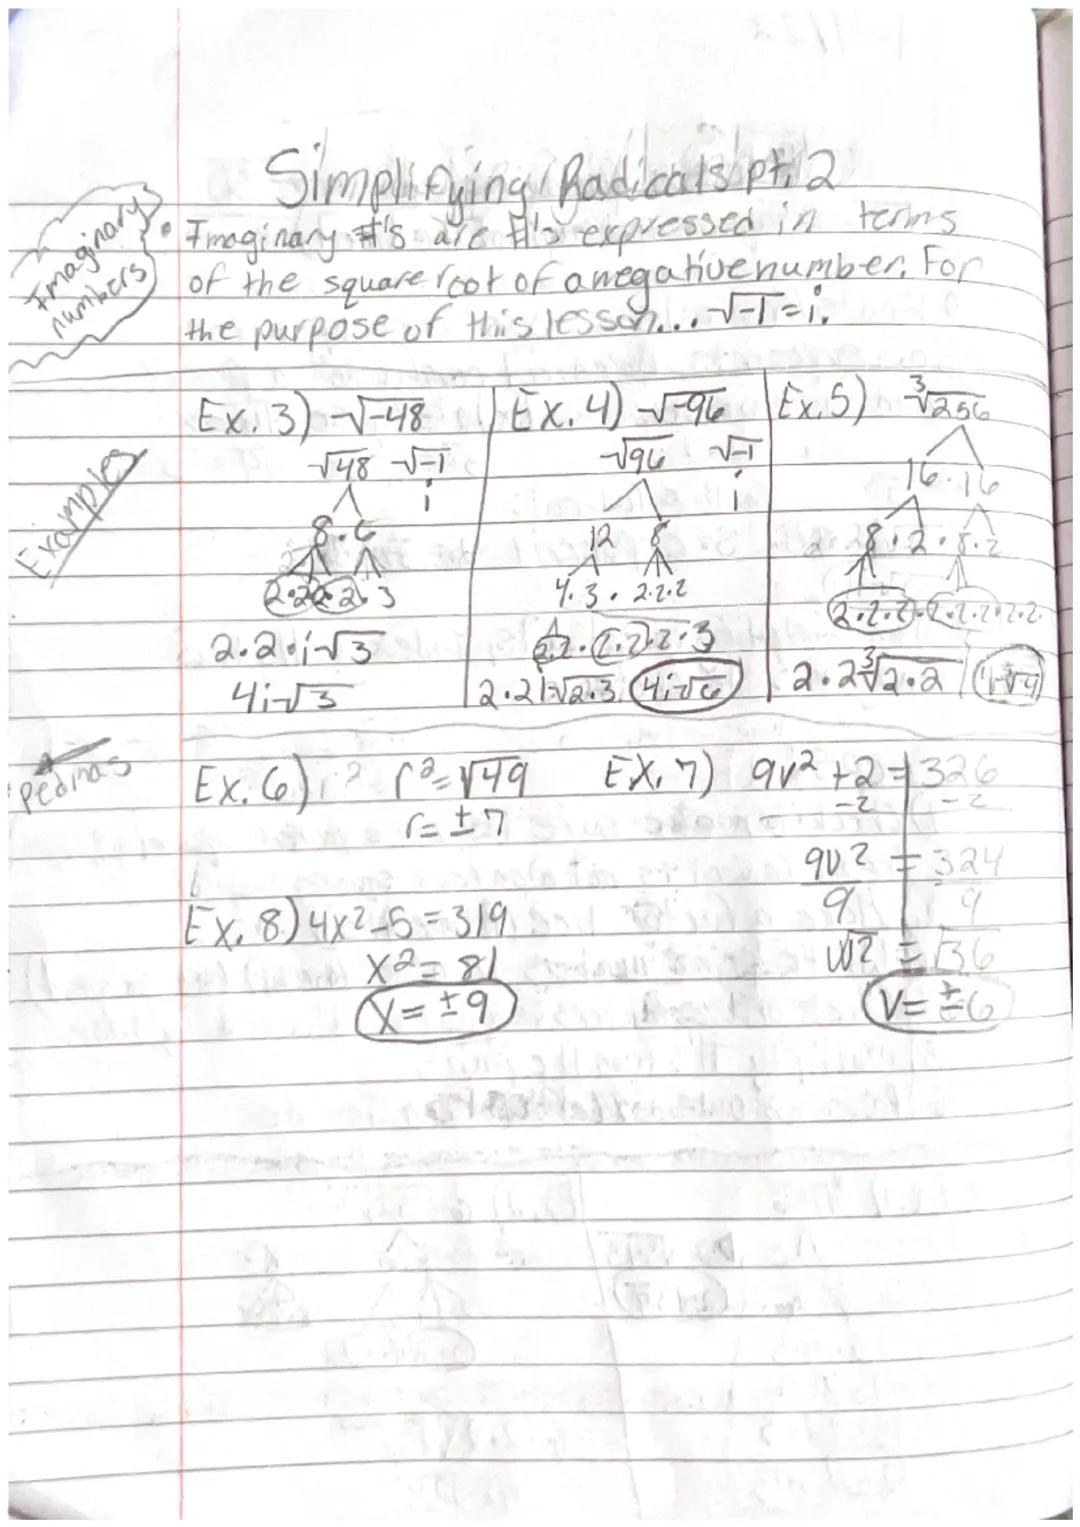 Simplifying Radicals pt. 2
Imaginary numbers
• Imaginary #'s are #'s expressed in terms
of the square root of a negative number. For
the purpose of this lesson... √-1 = i.
Examples
Ex. 3) √-48
√48 √-1
i
8·6
2·2·2·2·3
2·2·i√3
4i√3
Ex. 4) √-96
√96 √-1
i
12 8
4·3·2·2·2
2·2·2·2·2·3
2·2i√2·3 4i√6
Ex. 5) ³√256
16·16
8·2·8·2
2·2·2·2·2·2·2·2
2·2³√2·2 4³√4
Ex. 6) r² = √49
r = ±7
Ex. 7) 9v² + 2 = 326
-2 -2
9v² = 324
9 9
√v² = √36
v = ±6
Ex. 8) 4x²-5 = 319
x² = 81
x = ±9